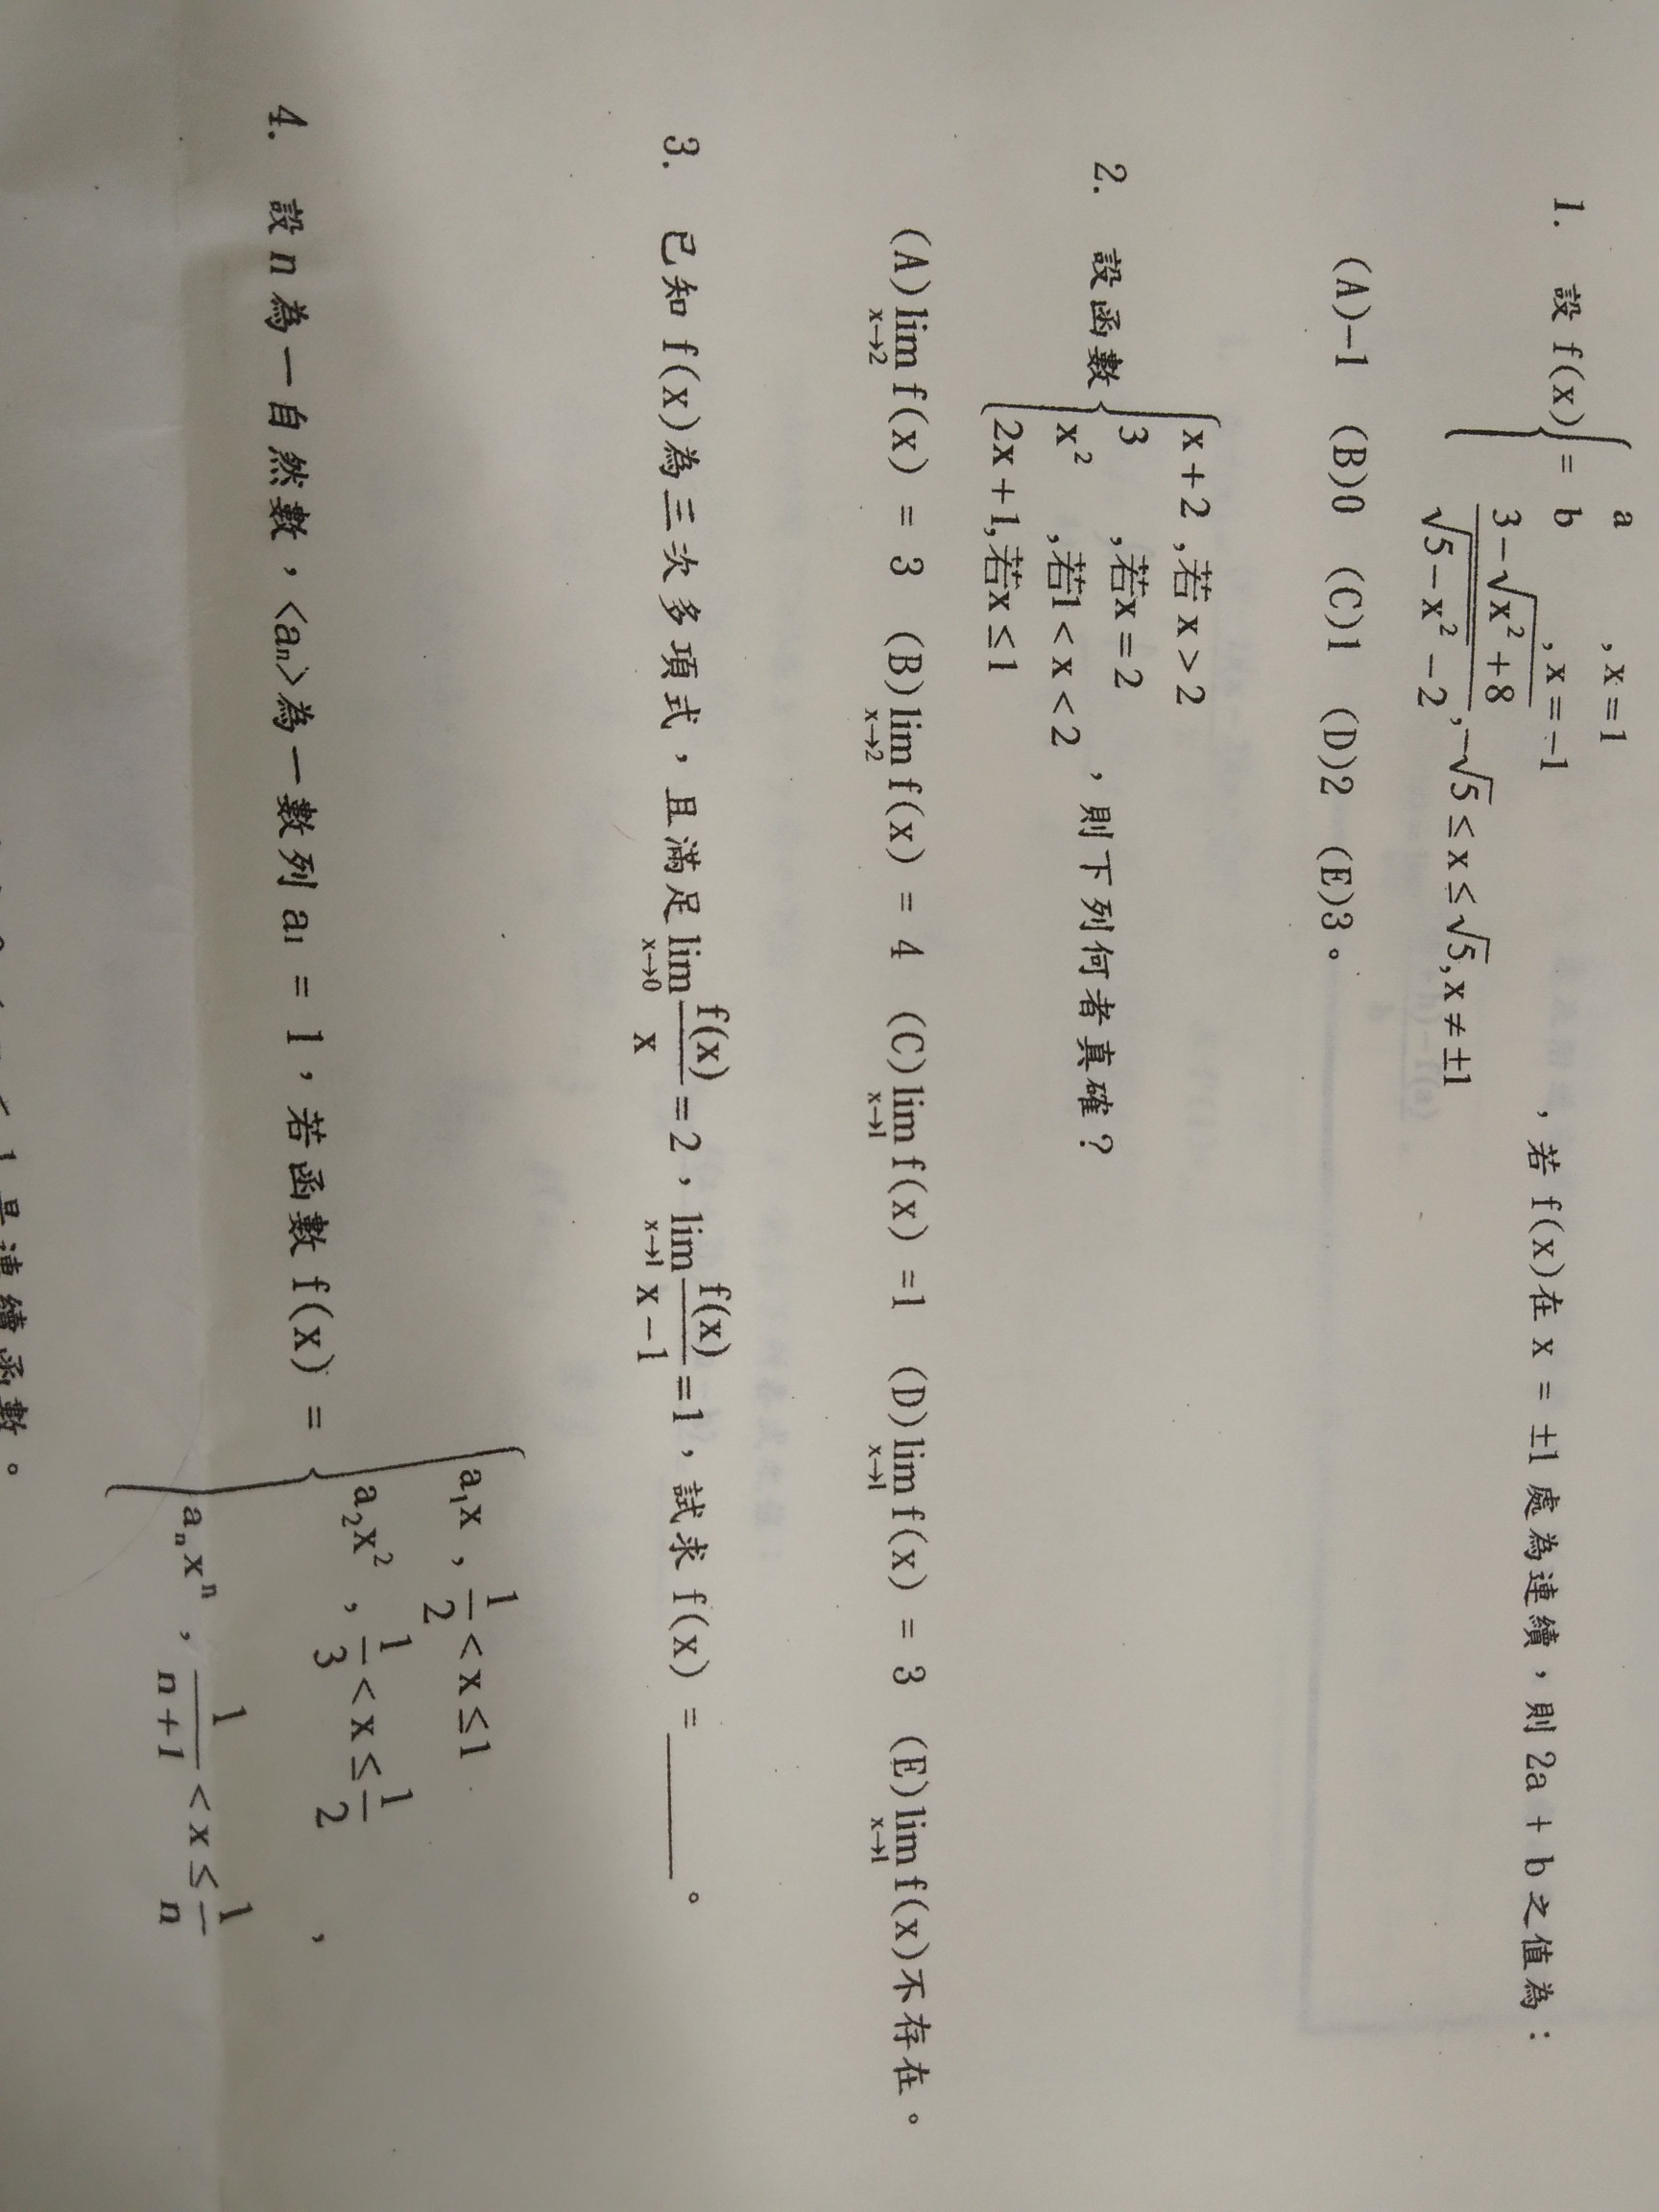 1. 設 f(x) = { a , x=1
b , x=-1
(3-√(x²+8))/(√(5-x²)-2) , -√5≤x≤√5, x≠±1 ，若 f(x)在 x = ±1 處為連續，則 2a + b 之值為：
(A)-1 (B)0 (C)1 (D)2 (E)3。
2. 設函數 { x+2 ,若 x>2
3 ,若x=2
x² ,若1<x<2
2x+1,若x≤1 ，則下列何者真確？
(A)lim_{x→2} f(x) = 3 (B)lim_{x→2} f(x) = 4 (C)lim_{x→1} f(x) =1 (D)lim_{x→1} f(x) = 3 (E)lim_{x→1} f(x)不存在。
3. 已知 f(x)為三次多項式，且滿足 lim_{x→0} f(x)/x =2，lim_{x→1} f(x)/(x-1) =1，試求 f(x) = ______。
4. 設 n 為一自然數，<aₙ>為一數列 a₁ = 1，若函數 f(x) = { a₁x , 1/2<x≤1
a₂x² , 1/3<x≤1/2 ，
aₙxⁿ , 1/(n+1)<x≤1/n
連續函數。